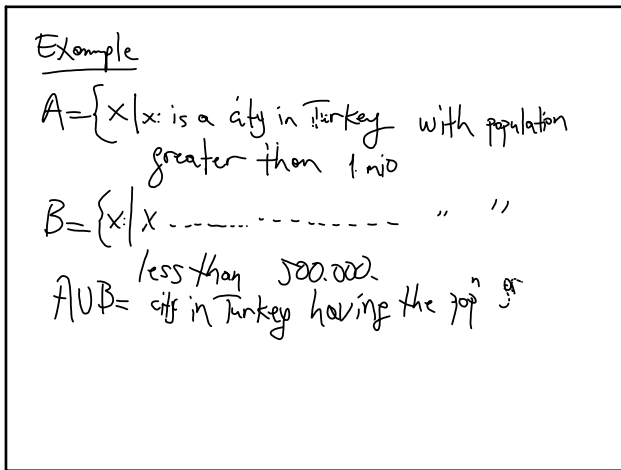 Example
A={x|x: is a city in Turkey with population
greater than 1 mio
B={x:|x ................ " "
less than 500.000.
AUB= city in Turkey having the popⁿ or